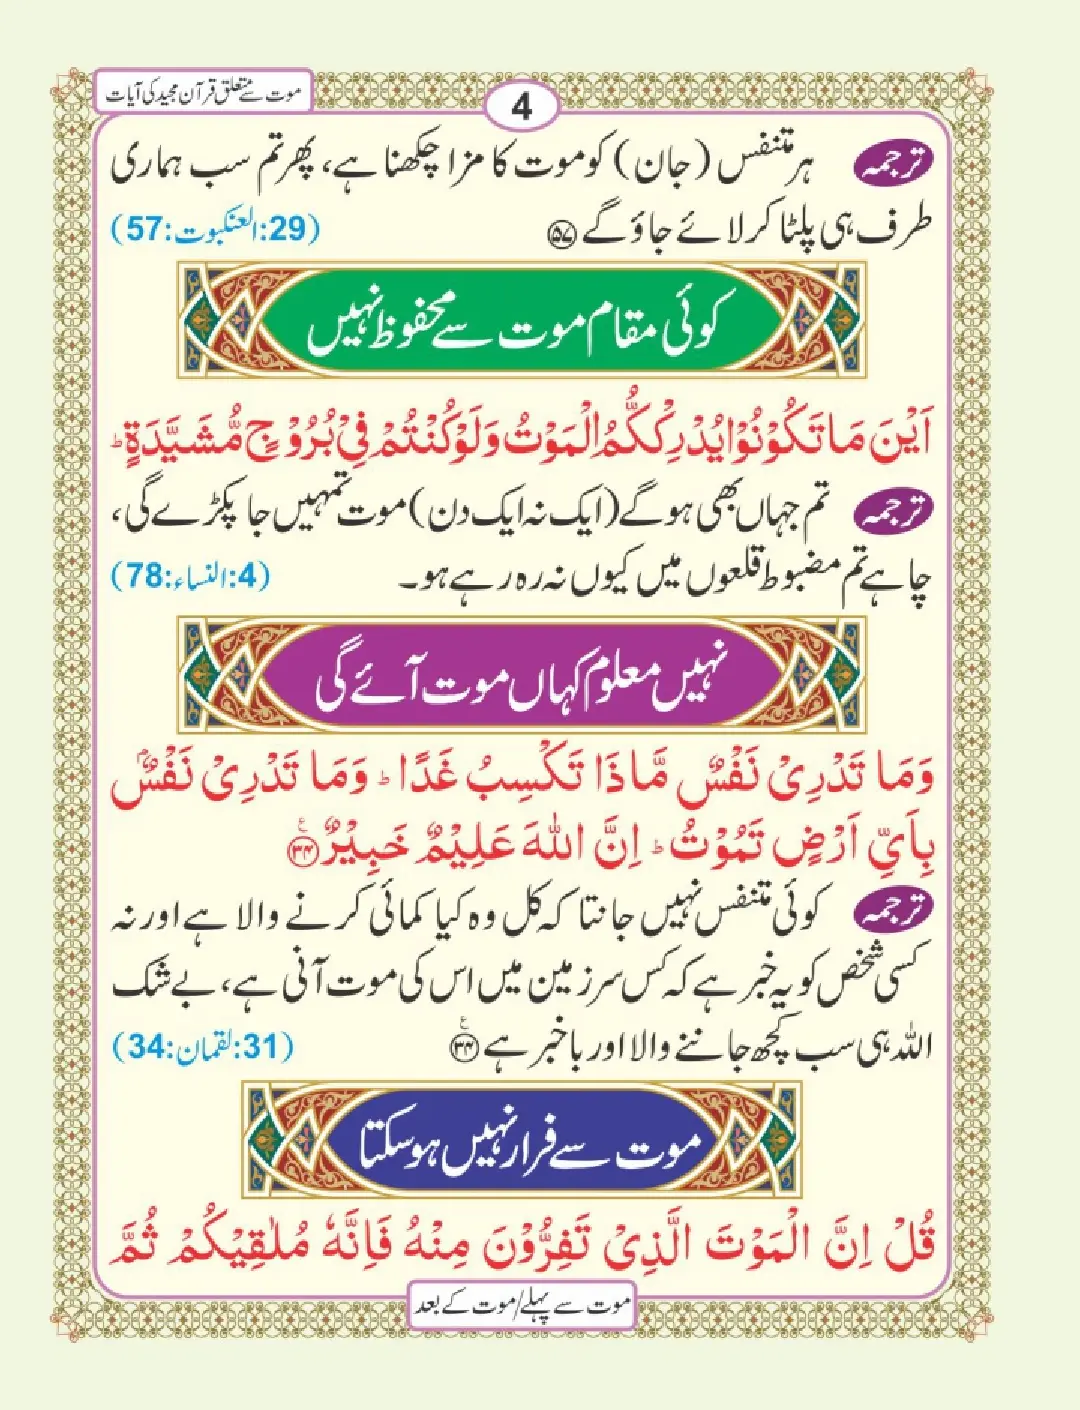 موت سے متعلق قرآن مجید کی آیات
4
ترجمہ ہر متنفس (جان) کو موت کا مزا چکھنا ہے، پھر تم سب ہماری
طرف ہی پلٹا کر لائے جاؤ گے ۵۷ (29:العنکبوت:57)
کوئی مقام موت سے محفوظ نہیں
اَیْنَ مَا تَكُوْنُوْا یُدْرِكْكُّمُ الْمَوْتُ وَ لَوْ كُنْتُمْ فِیْ بُرُوْجٍ مُّشَیَّدَةٍ ؕ
ترجمہ تم جہاں بھی ہو گے (ایک نہ ایک دن) موت تمہیں جا پکڑے گی،
چاہے تم مضبوط قلعوں میں کیوں نہ رہ رہے ہو۔ (4:النساء:78)
نہیں معلوم کہاں موت آئے گی
وَ مَا تَدْرِیْ نَفْسٌ مَّاذَا تَكْسِبُ غَدًا ؕ وَ مَا تَدْرِیْ نَفْسٌۢ
بِاَیِّ اَرْضٍ تَمُوْتُ ؕ اِنَّ اللہَ عَلِیْمٌ خَبِیْرٌ ۳۴ ع
ترجمہ کوئی متنفس نہیں جانتا کہ کل وہ کیا کمائی کرنے والا ہے اور نہ
کسی شخص کو یہ خبر ہے کہ کس سرزمین میں اس کی موت آنی ہے، بے شک
اللہ ہی سب کچھ جاننے والا اور باخبر ہے ۳۴ ع (31:لقمان:34)
موت سے فرار نہیں ہو سکتا
قُلْ اِنَّ الْمَوْتَ الَّذِیْ تَفِرُّوْنَ مِنْهُ فَاِنَّهٗ مُلٰقِیْكُمْ ثُمَّ
موت سے پہلے/موت کے بعد